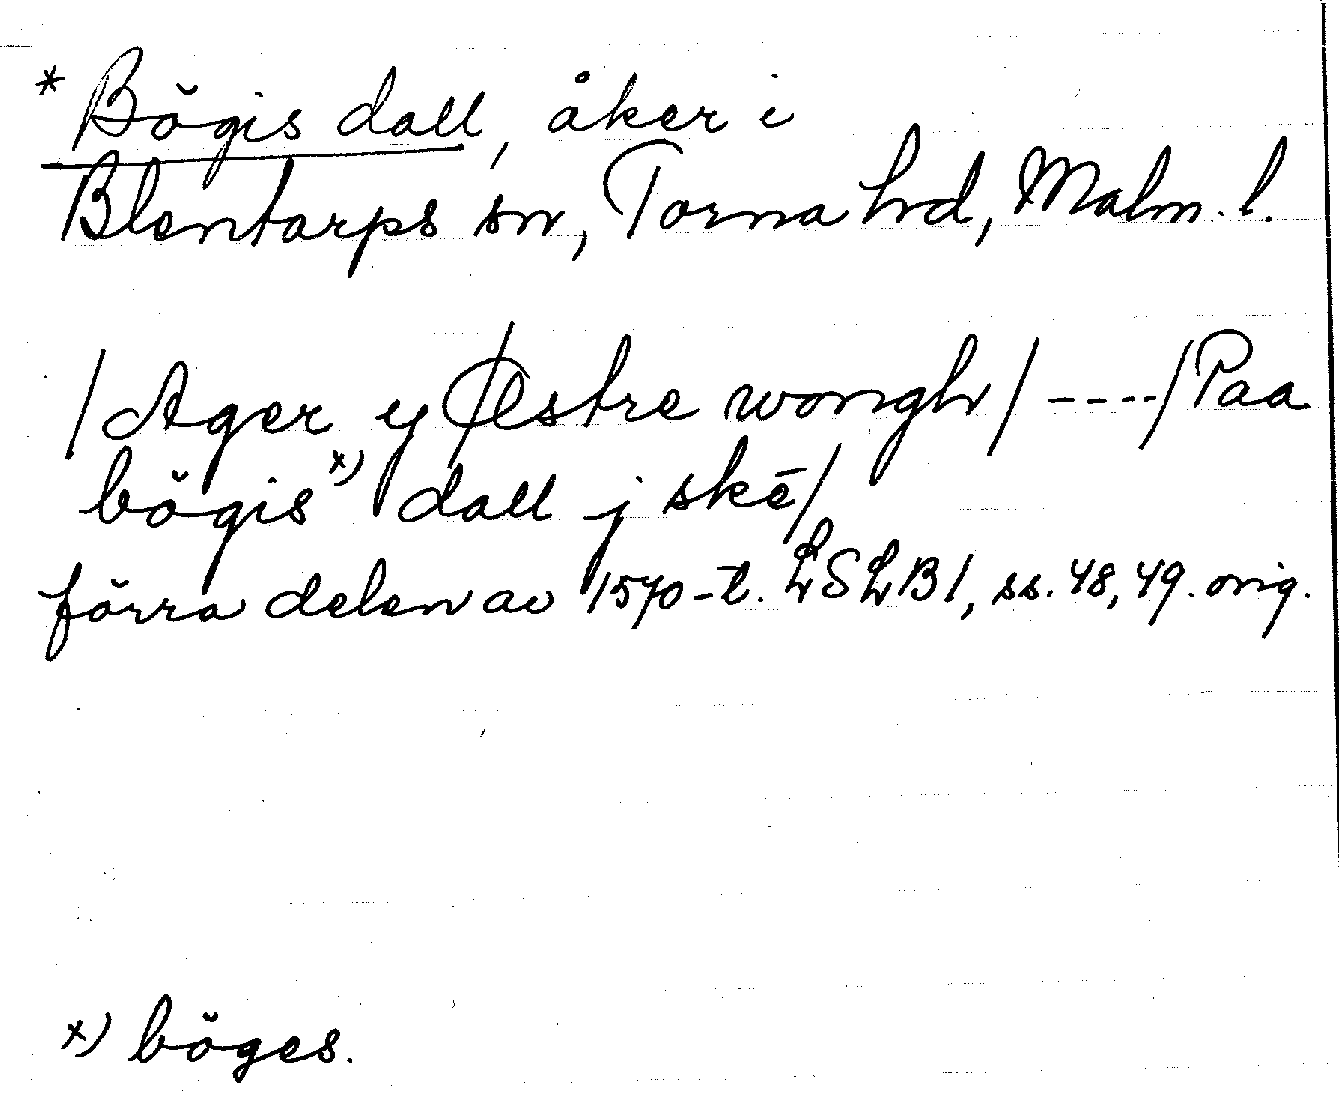 * Bögis dall, åker i
Blentarps sn, Torna hd, Malm. l.
/Ager y Østre wongh/ ----/Paa
bögis x) dall j skē/
förra delen av 1570-t. LSLB1, ss. 48, 49. orig.
x) böges.